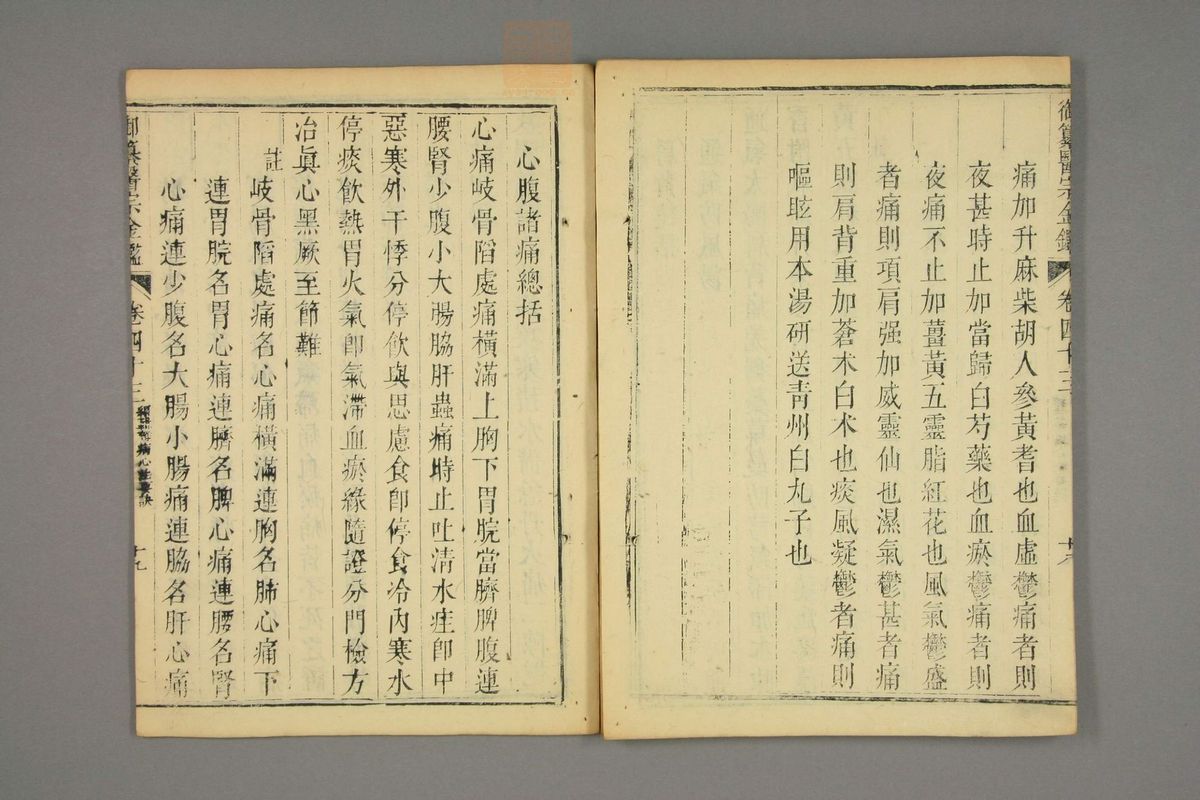 御纂醫宗金鑑 卷四十三
痛加升麻柴胡人參黃耆也血虛鬱痛者則
夜甚時止加當歸白芍藥也血瘀鬱痛者則
夜痛不止加薑黃五靈脂紅花也風氣鬱盛
者痛則項肩强加威靈仙也濕氣鬱甚者痛
則肩背重加蒼朮白朮也痰風凝鬱者痛則
嘔眩用本湯研送青州白丸子也
心腹諸痛總括
心痛岐骨陷處痛橫滿上胸下胃脘當臍脾腹連
腰腎少腹小大腸脇肝蟲痛時止吐清水疰卽中
惡寒外干悸分停飲與思慮食卽停食冷內寒水
停痰飲熱胃火氣卽氣滯血瘀緣隨證分門檢方
治眞心黑厥至節難
註 岐骨陷處痛名心痛橫滿連胸名肺心痛下
連胃脘名胃心痛連臍名脾心痛連腰名腎
心痛連少腹名大腸小腸痛連脇名肝心痛
御纂醫宗金鑑 卷四十三 心法要訣 十九